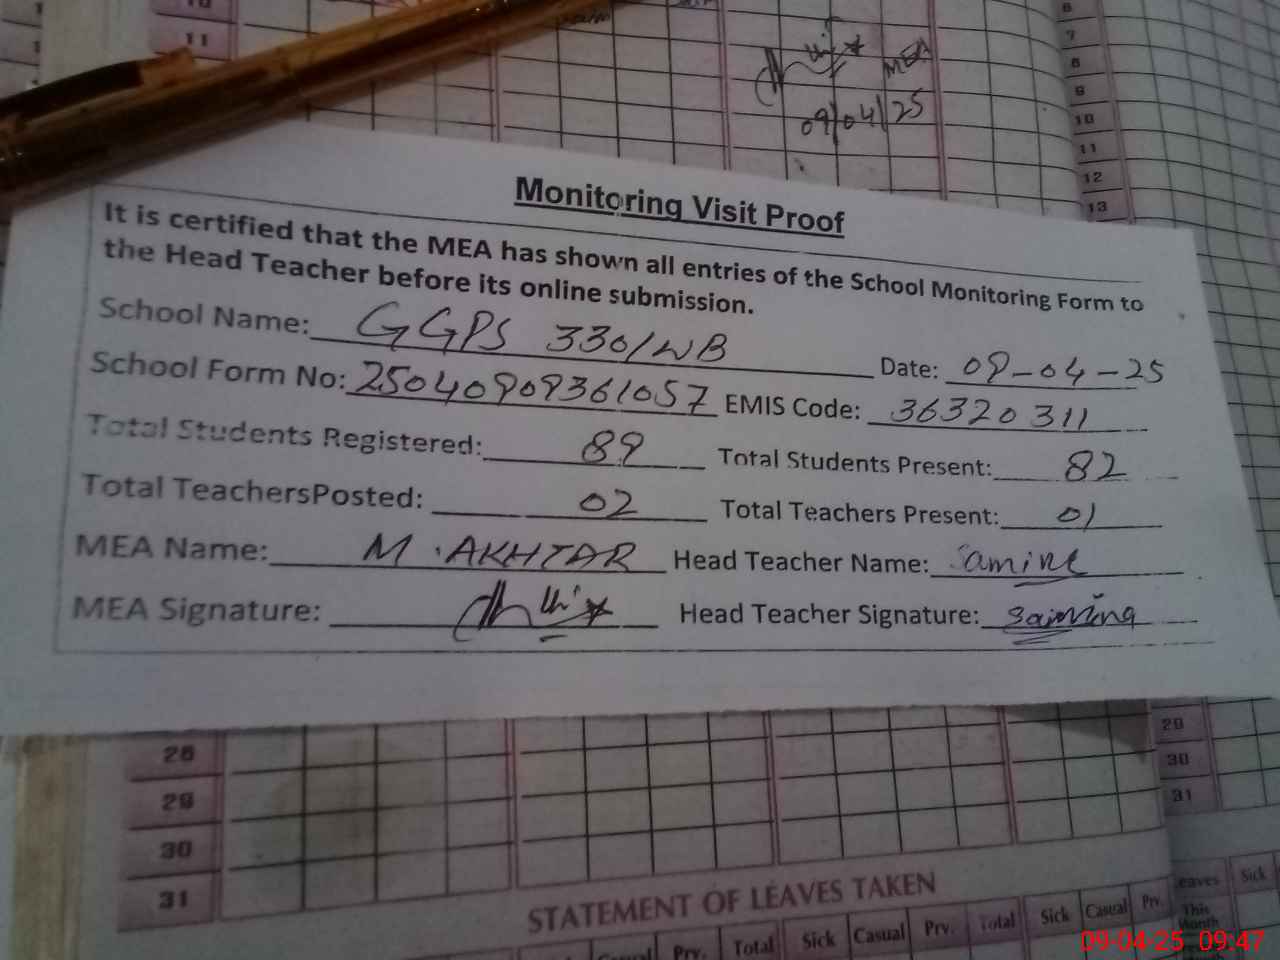 10
11
MEA
09/04/25
6
7
8
9
10
11
12
13
Monitoring Visit Proof
It is certified that the MEA has shown all entries of the School Monitoring Form to
the Head Teacher before its online submission.
School Name: GGPS 330/WB Date: 09-04-25
School Form No: 25040909361057 EMIS Code: 36320311
Total Students Registered: 89 Total Students Present: 82
Total TeachersPosted: 02 Total Teachers Present: 01
MEA Name: M. AKHTAR Head Teacher Name: Samina
MEA Signature: Head Teacher Signature: Samina
28
29
30
31
29
30
31
STATEMENT OF LEAVES TAKEN
Casual Prv. Total Sick Casual Prv. Total Sick Casual Prv.
Leaves Sick
This
Month
09-04-25 09:47